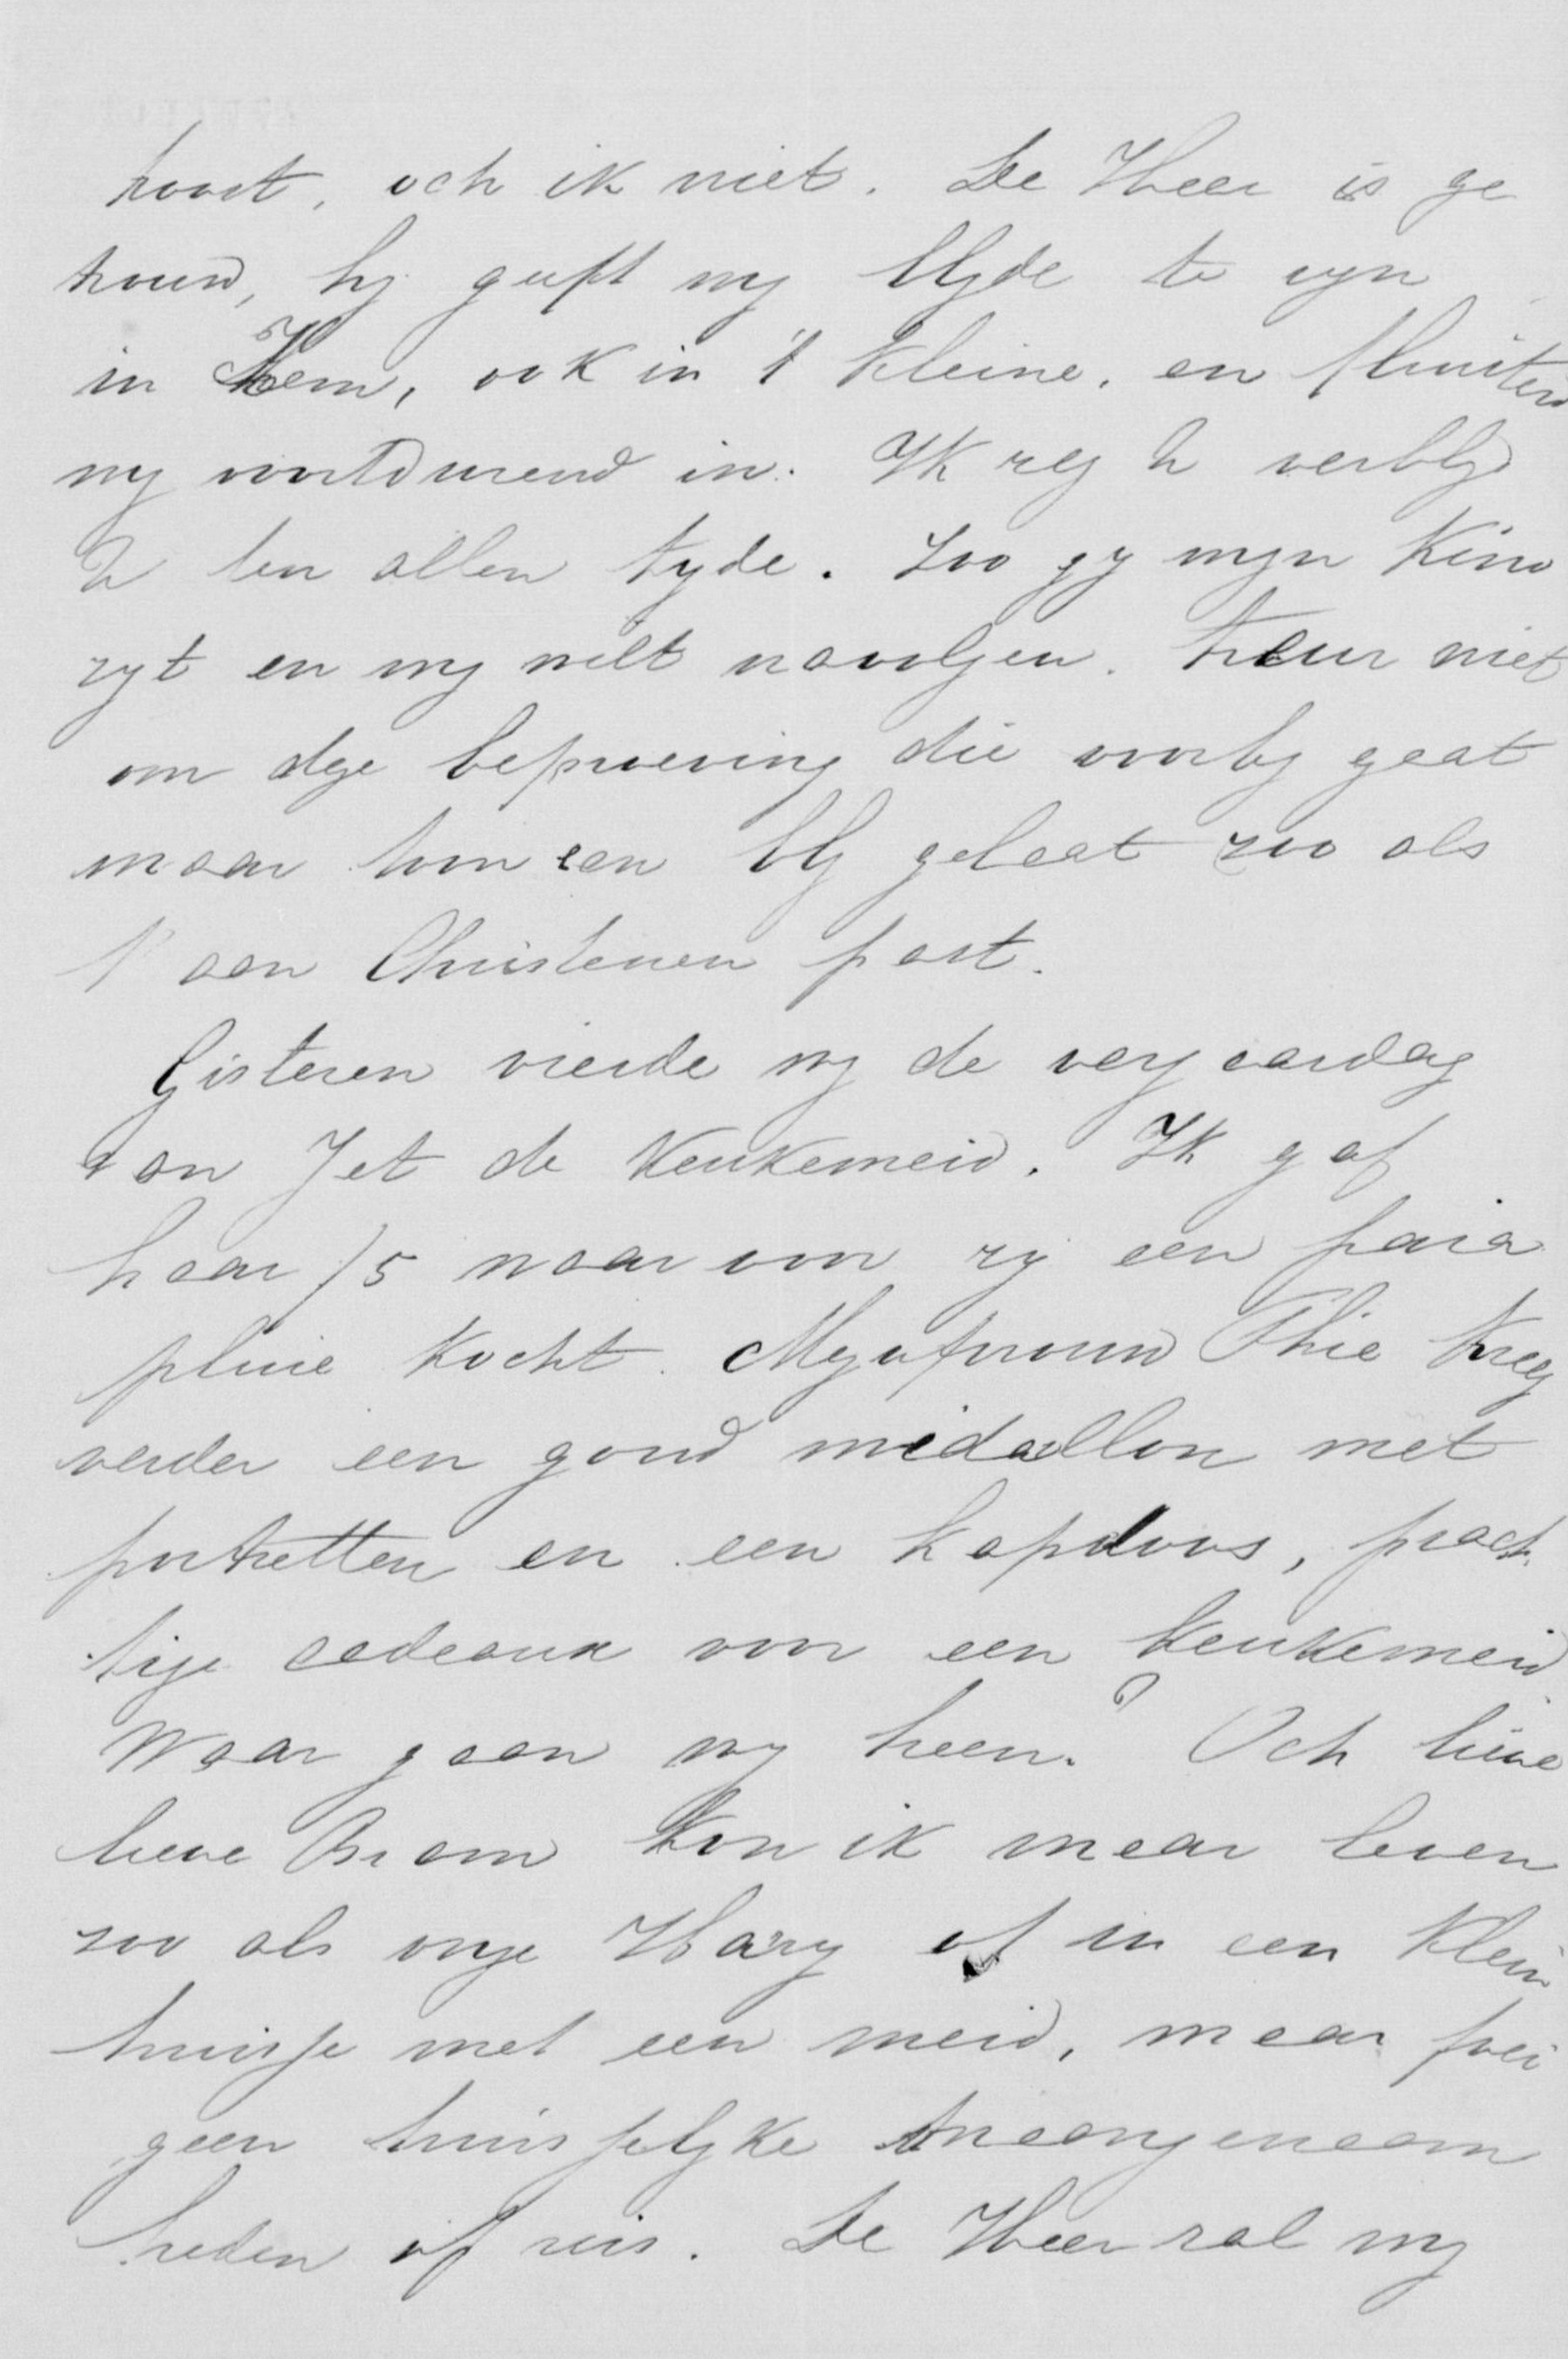 troost, och ik niet. De Heer is ge
trouw, hy geeft my blyde te zyn
in Hem, ook in 't kleine, en fluisterd
my voortdurend in: Ik zeg U verblyd
U ten allen tyde. Zoo gy myn Kind
zyt en my wilt navolgen. Treur niet
om dze beproeving die voorby gaat
maar toon een bly gelaat zoo als
't aan Christenen past.
Gisteren vierde wy de verjaardag
van Jet de keukemeid. Ik gaf
haar f5 waar voor zy een para
pluie kocht. Mejufvrouw Thie kreeg
verder een goud medallon met
portretten en een kapdoos, prach
tige cadeaux voor een keukemeid
Waar gaan wy heen? Och lieve
lieve Bram kon ik maar leven
zoo als onze Harry of in een klein
huisje met een meid, maar
geen huisselyke onaangenaam
heden of ruis. De Heer zal my